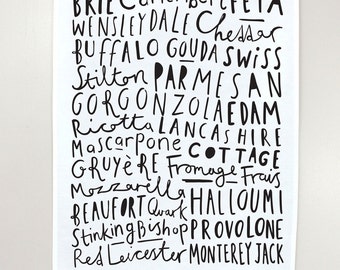 BRIE Camembert FETA
WENSLEYDALE Cheddar
BUFFALO GOUDA SWISS
Stilton PARMESAN
GORGONZOLA EDAM
Ricotta LANCASHIRE
Mascarpone COTTAGE
GRUYÈRE Fromage Frais
Mozzarella HALLOUMI
BEAUFORT Quark
Stinking Bishop PROVOLONE
Red Leicester MONTEREY JACK